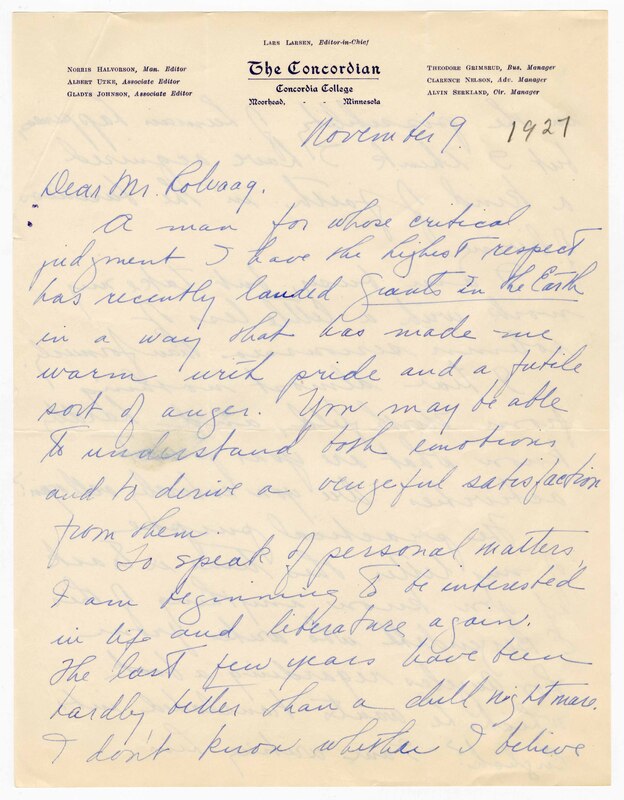 Lars Larsen, Editor-in-Chief
Norris Halvorson, Man. Editor
Albert Utke, Associate Editor
Gladys Johnson, Associate Editor
The Concordian
Concordia College
Moorhead, - - Minnesota
Theodore Grimsrud, Bus. Manager
Clarence Nelson, Adv. Manager
Alvin Serkland, Cir. Manager
November 9. 1927
Dear Mr. Rolvaag.
A man for whose critical
judgment I have the highest respect
has recently lauded Giants in the Earth
in a way that has made me
warm with pride and a futile
sort of anger. You may be able
to understand both emotions
and to derive a vengeful satisfaction
from them.
To speak of personal matters,
I am beginning to be interested
in life and literature again.
The last few years have been
hardly better than a dull nightmare.
I don't know whether I believe